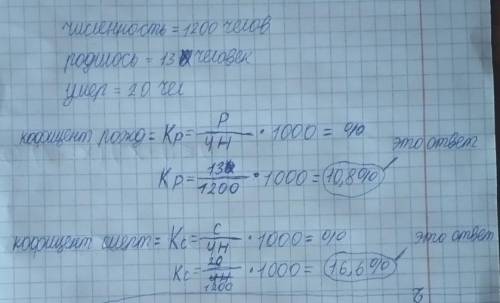 численность = 1200 челов
родилось = 13 человек
умер = 20 чел
кофицент рожд = Kр = Р/ЧН • 1000 = %
Kр = 13/1200 • 1000 = 10,8% это ответ
кофицент смерт = Kс = с/ЧН • 1000 = % это ответ
Kс = 20/1200 • 1000 = 16,6%